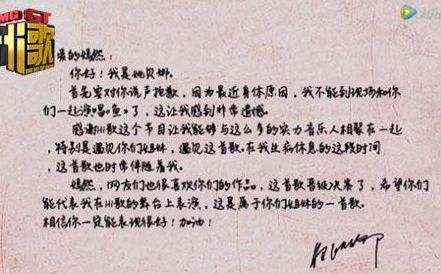 OMG GT
Hi歌
爱的嫣然：
你好！我是姚贝娜。
首先要对你说声抱歉，因为最近身体原因，我不能到现场和你
们一起演唱《鱼》了，这让我感到非常遗憾。
感谢Hi歌这个节目让我能够与这么多的实力音乐人相聚在一起
，特别是遇见你们姐妹，遇见这首歌。在我生病休息的这段时间
，这首歌也时常伴随着我。
嫣然，网友们也很喜欢你们的作品，这首歌晋级决赛了，希望你们
能代表我在Hi歌的舞台上表演，这是属于你们姐妹的一首歌。
相信你一定能表现很好！加油！